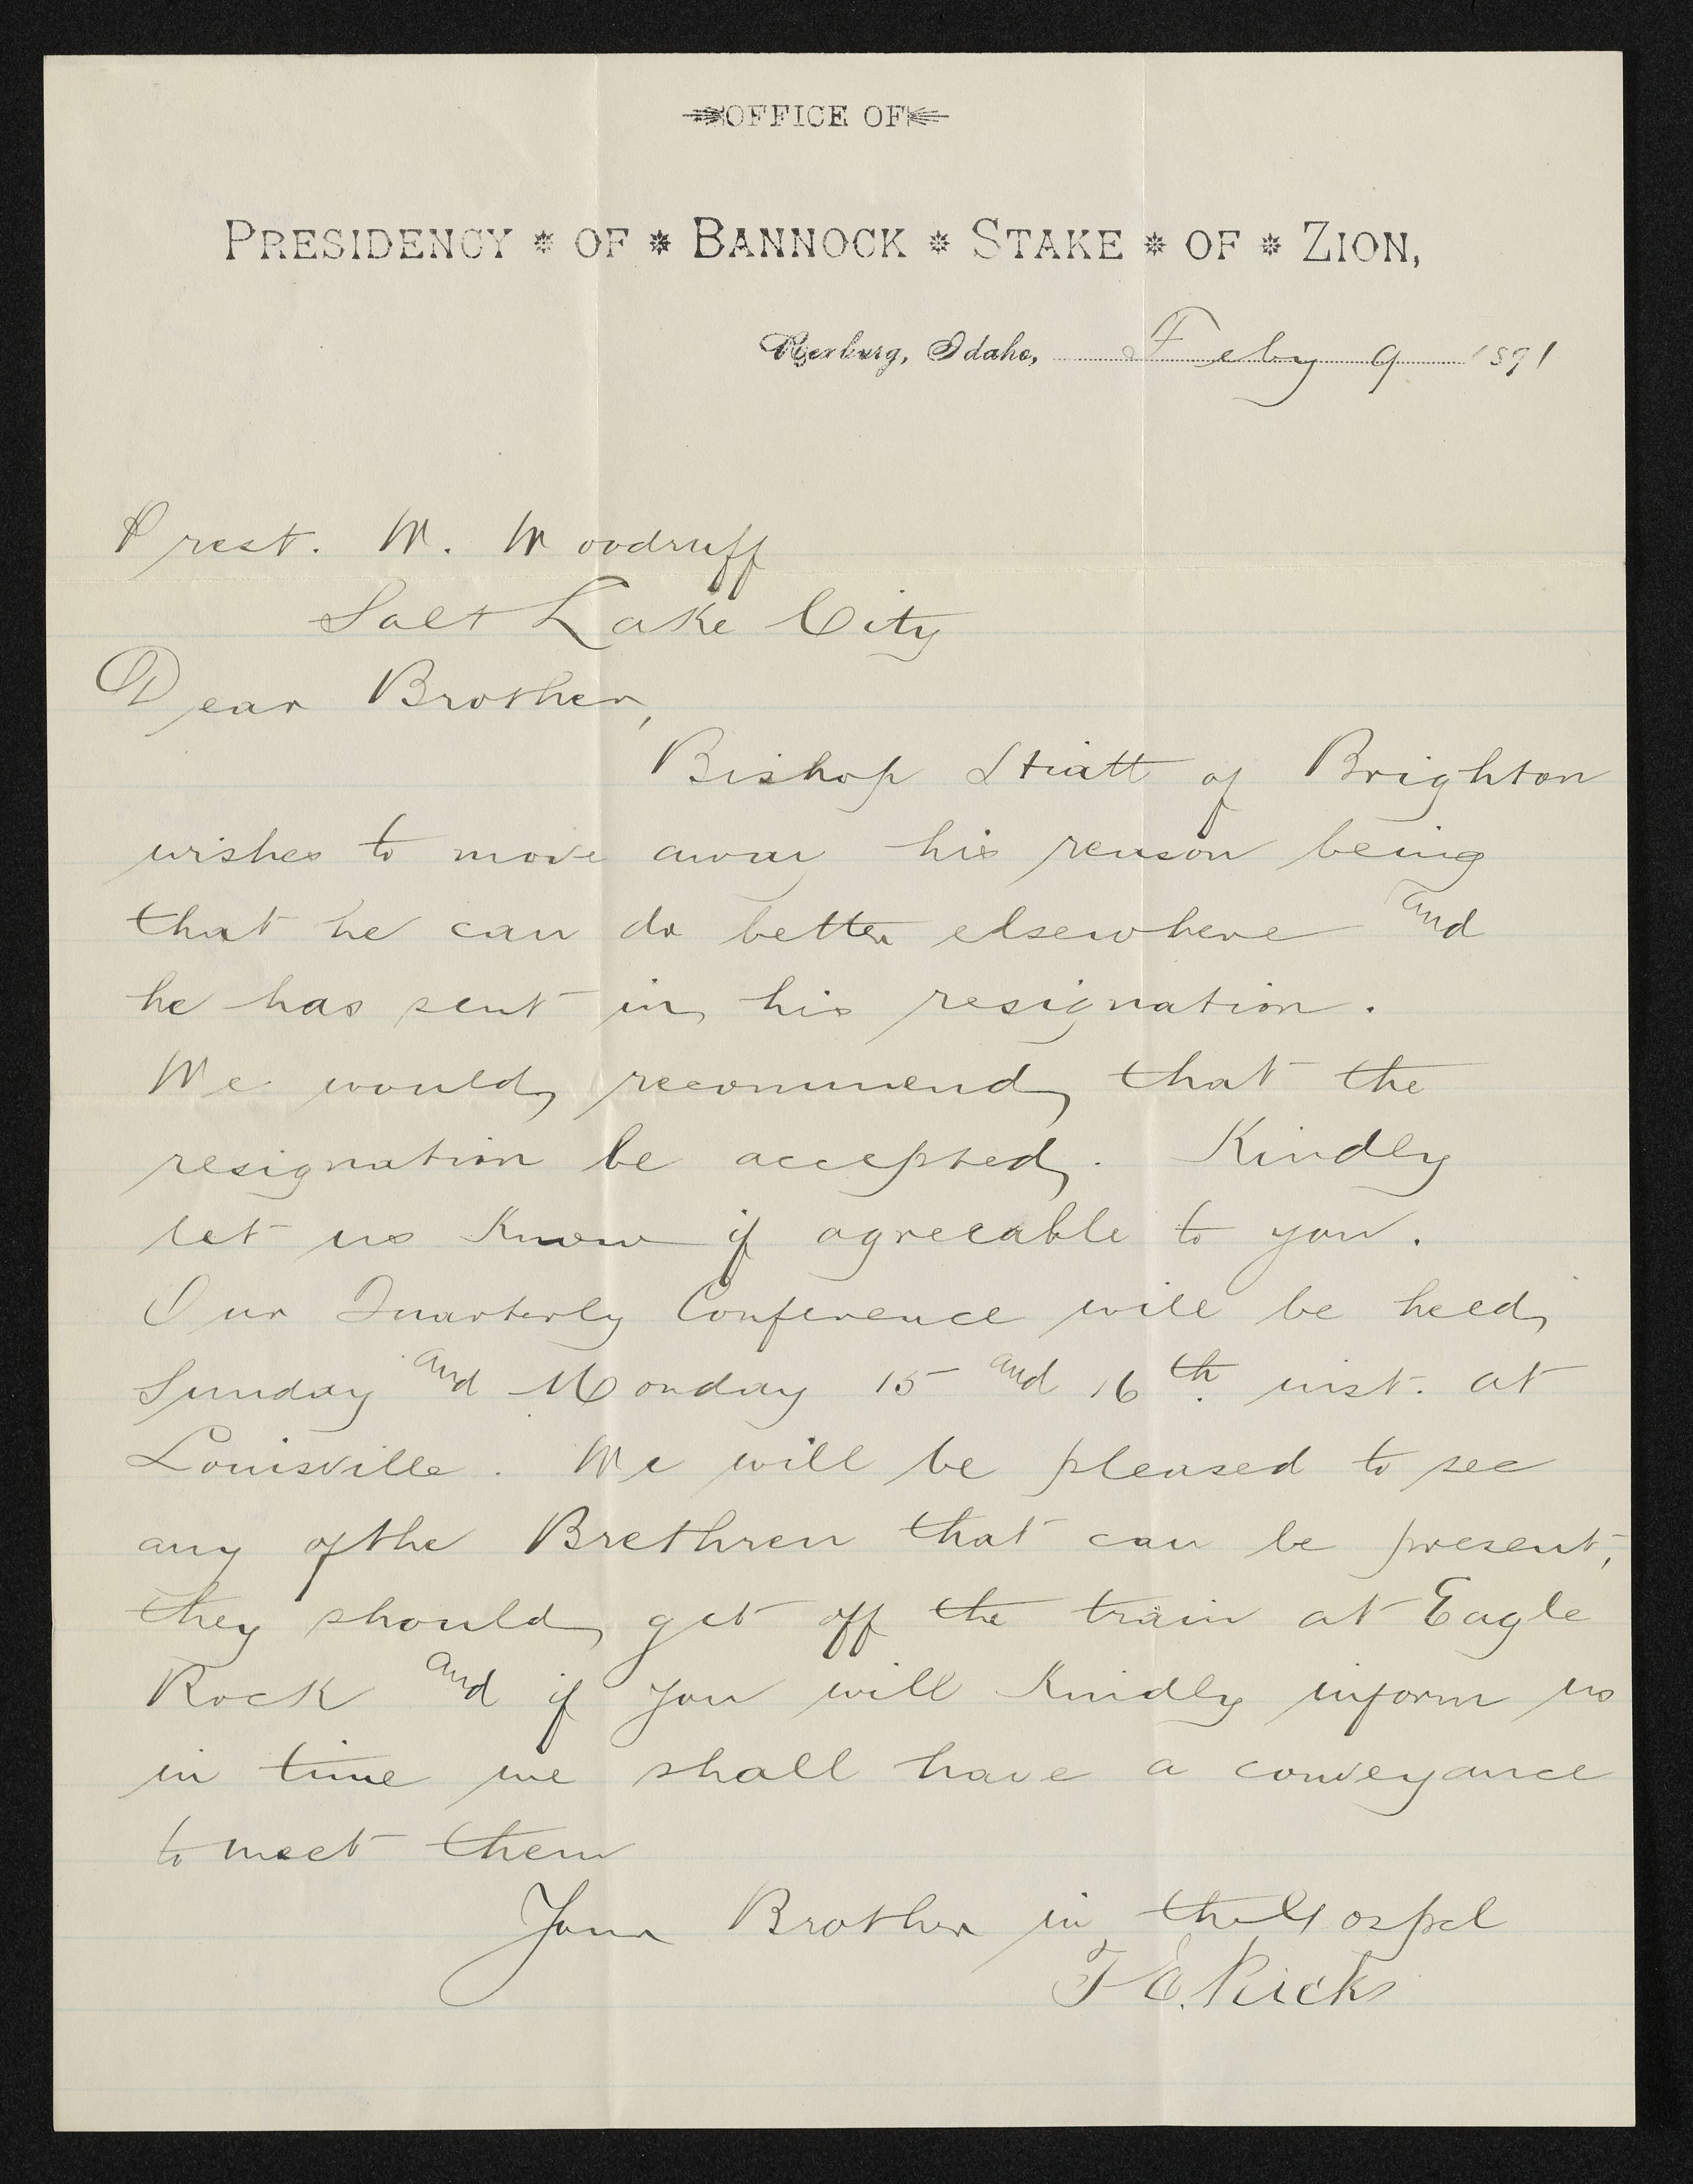 OFFICE OF
PRESIDENCY * OF * BANNOCK * STAKE * OF * ZION,
Rexburg, Idaho, Feby 9 1891
Prest. W. Woodruff
Salt Lake City
Dear Brother,
Bishop Hiatt of Brighton
wishes to move away his reason being
that he can do better elsewhere and
he has sent in his resignation.
We would recommend that the
resignation be accepted. Kindly
let us Know if agreeable to you.
Our Quarterly Conference will be held
Sunday and Monday 15 and 16th. inst. at
Louisville. We will be pleased to see
any of the Brethren that can be present,
they should get off the train at Eagle
Rock and if you will Kindly inform us
in time we shall have a conveyance
to meet them
Your Brother in the Gospel
T. E. Ricks